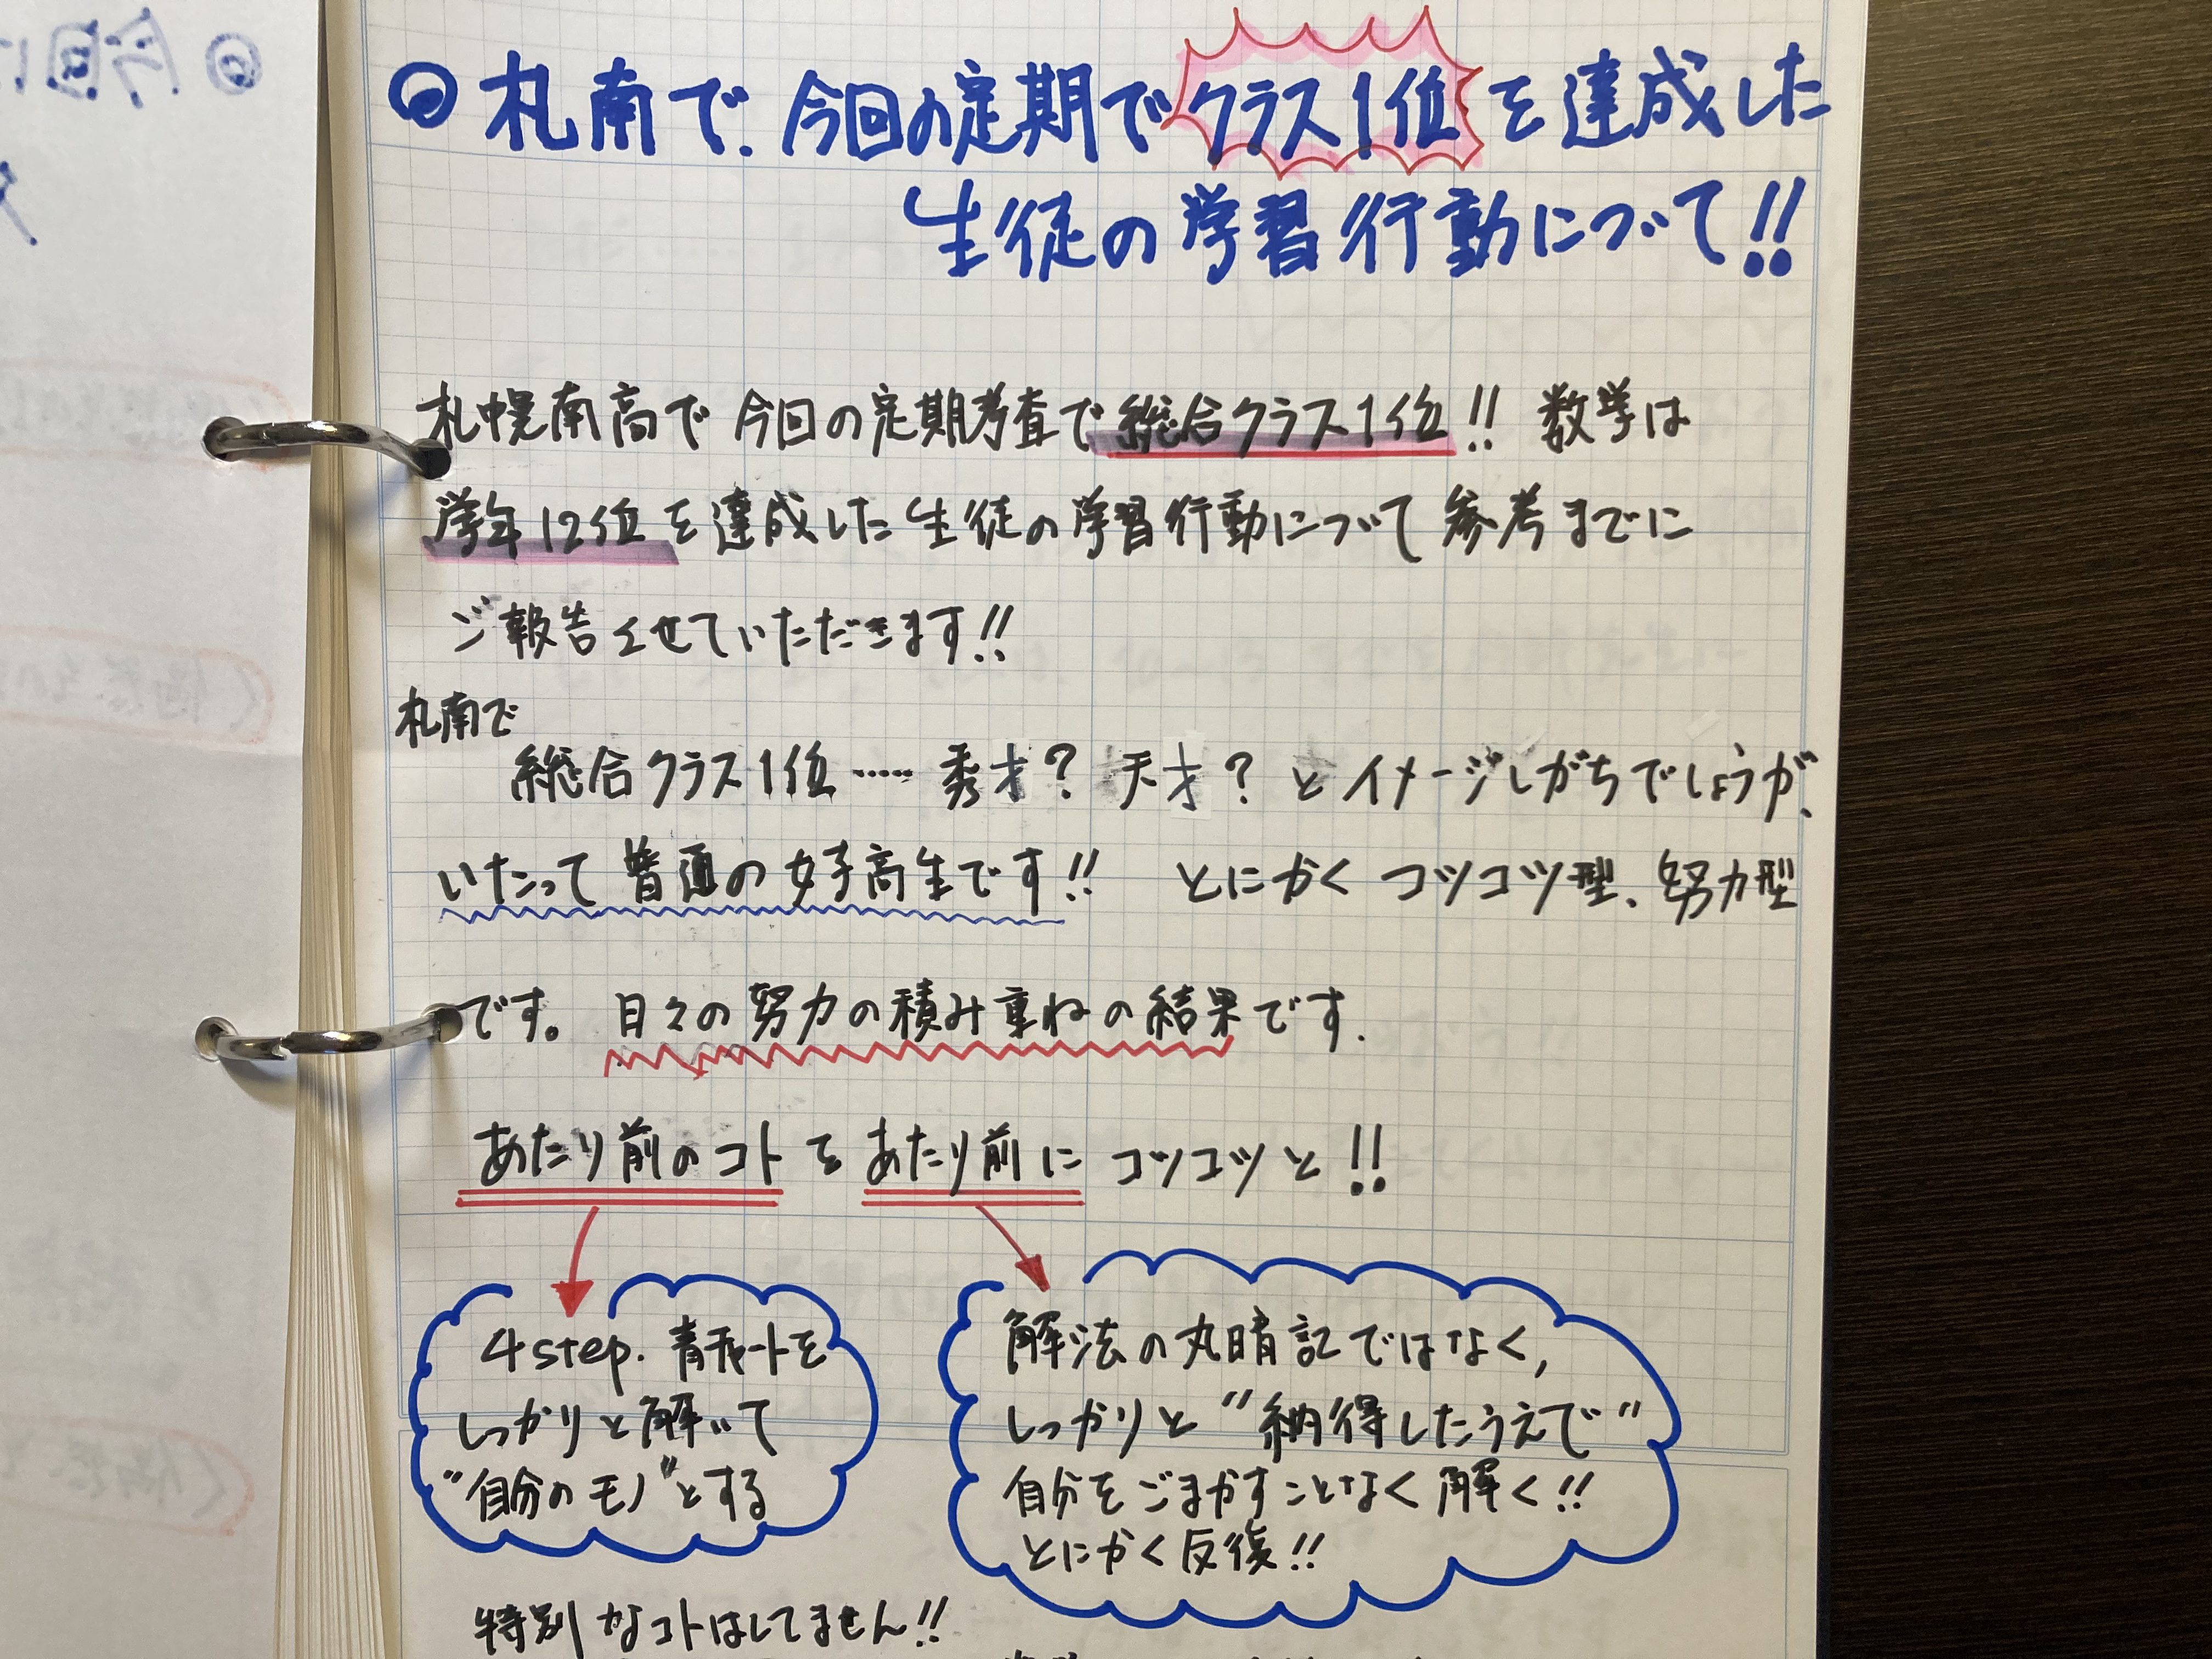 ◎札南で、今回の定期でクラス1位を達成した
生徒の学習行動について!!
札幌南高で今回の定期考査で総合クラス1位!! 数学は
学年12位を達成した生徒の学習行動について参考までに
ご報告させていただきます!!
札南で
総合クラス1位…… 秀才? 天才? とイメージしがちでしょうが、
いたって普通の女子高生です!! とにかくコツコツ型、努力型
です。日々の努力の積み重ねの結果です.
あたり前のコトをあたり前にコツコツと!!
4step.青チャートを
しっかりと解いて
"自分のモノ"とする
解法の丸暗記ではなく,
しっかりと"納得したうえで"
自分をごまかすことなく解く!!
とにかく反復!!
特別なコトはしてません!!